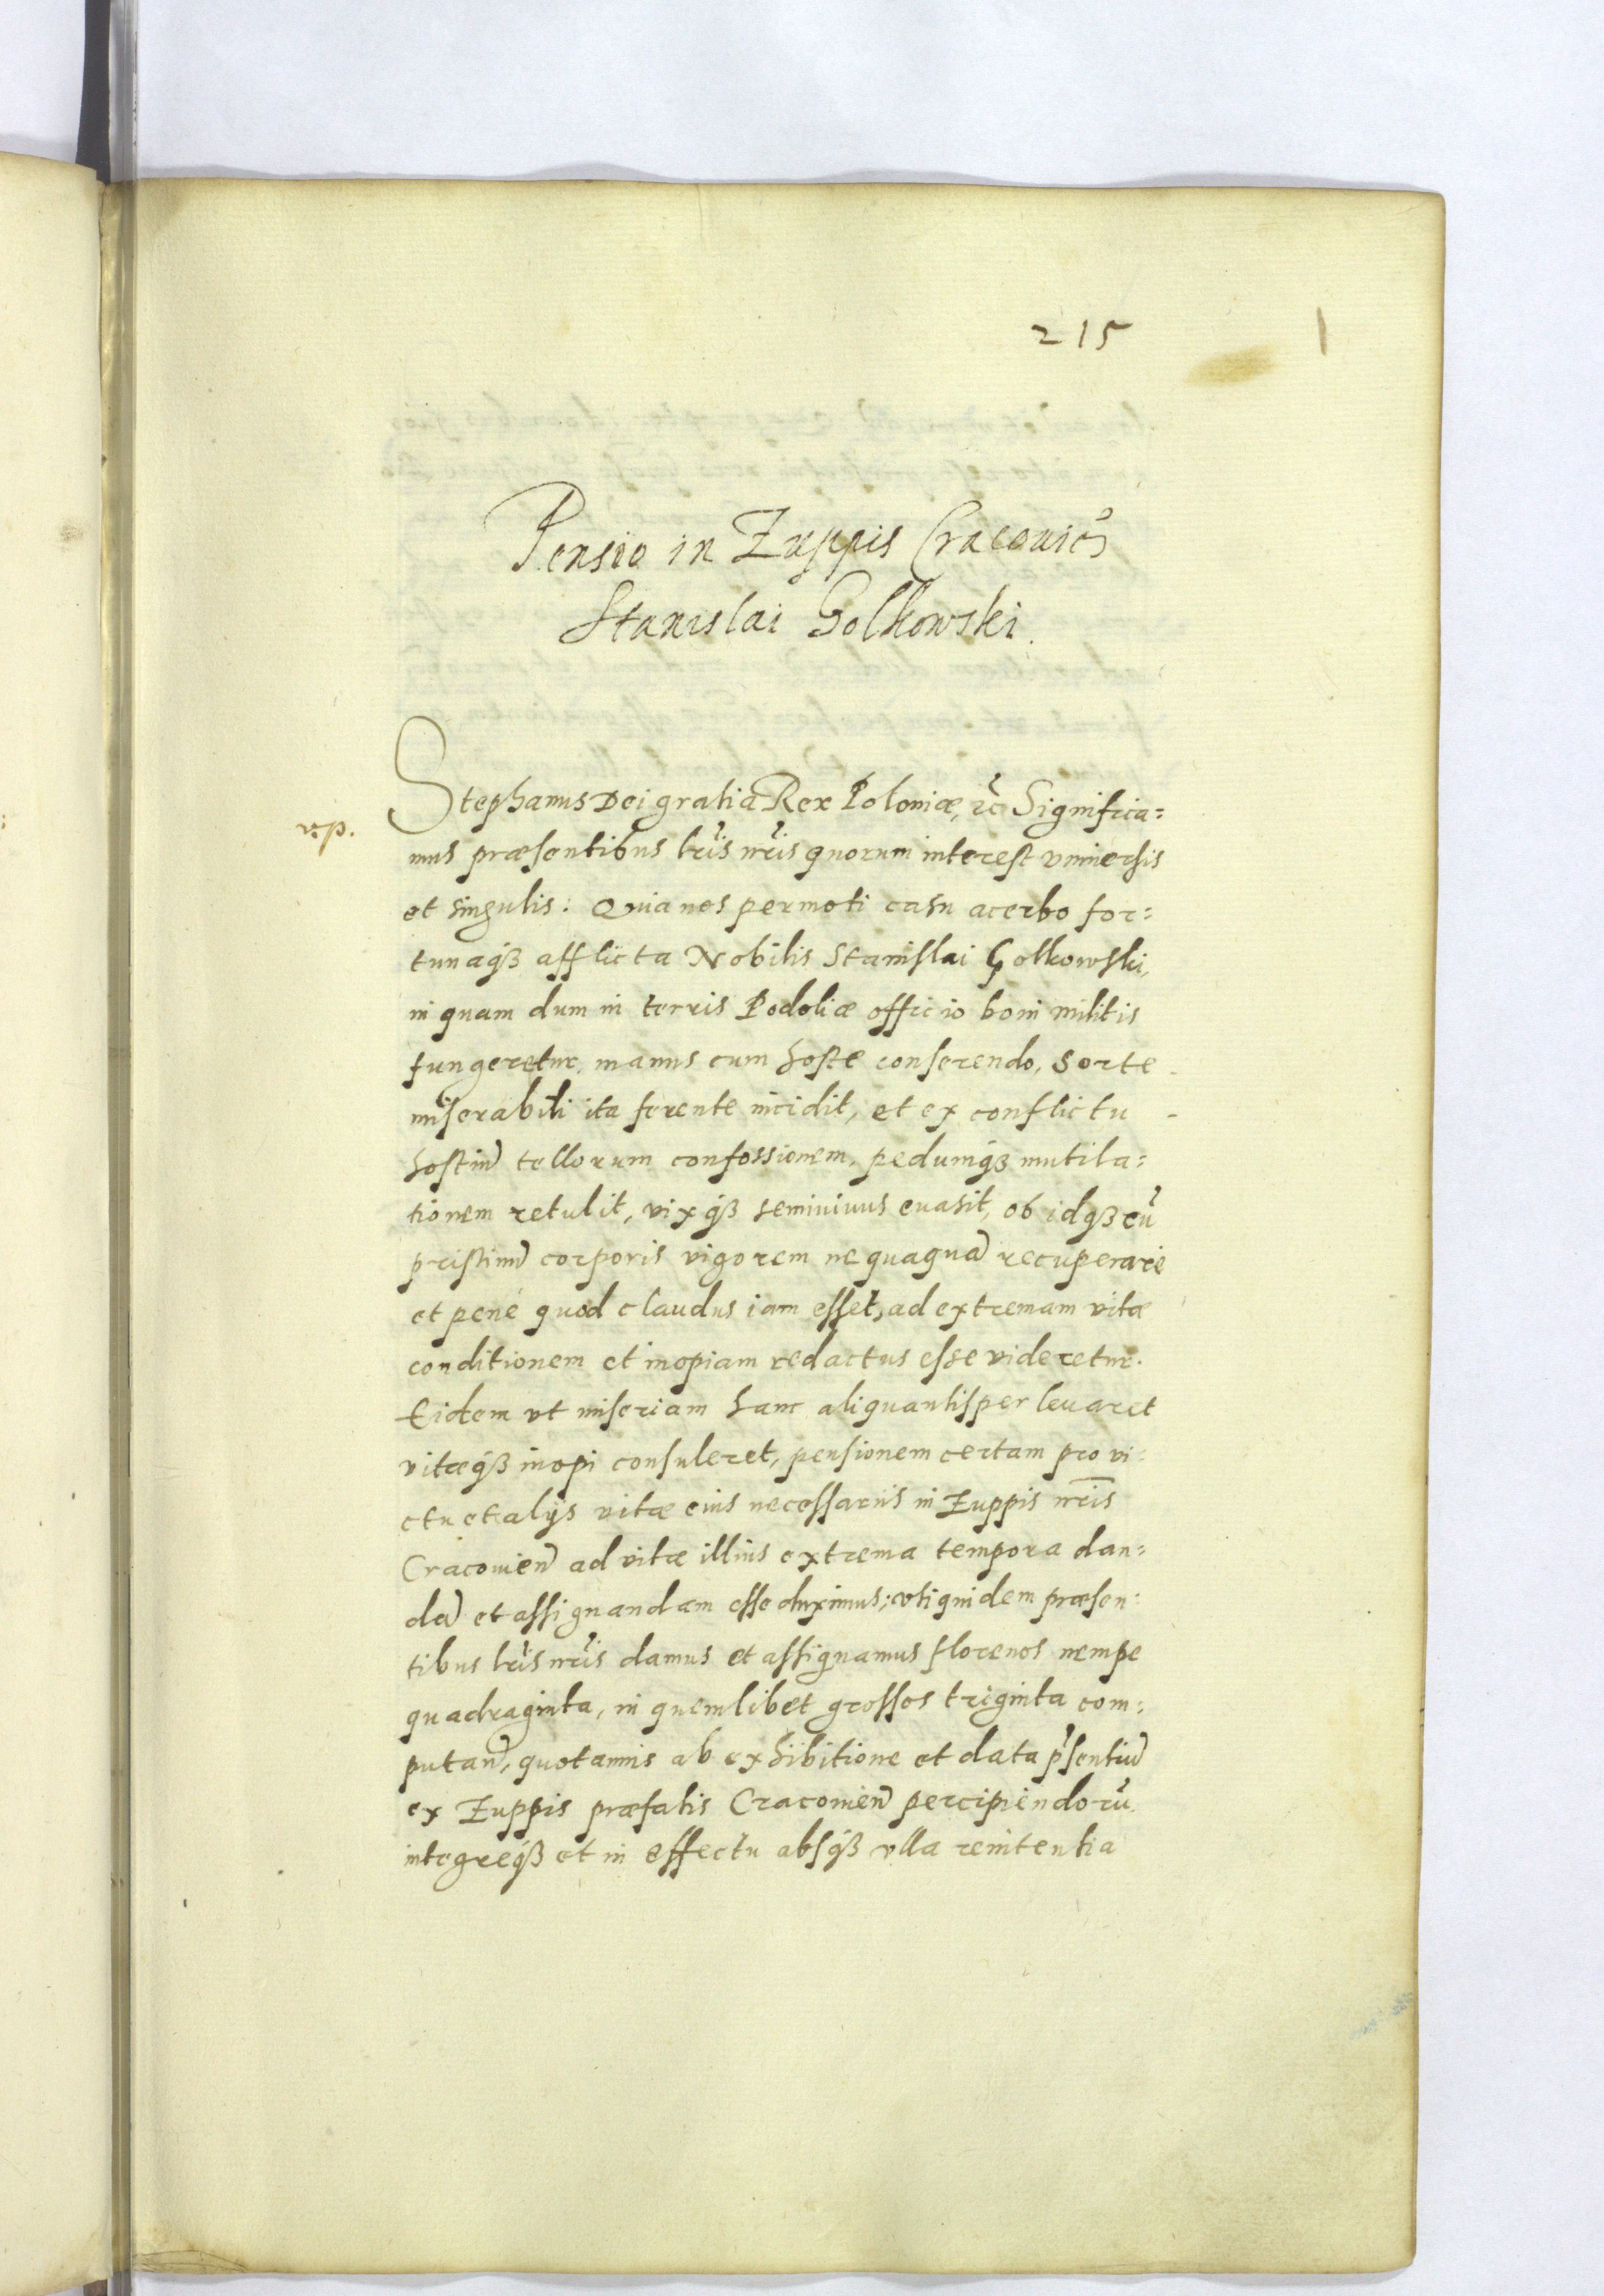 215
1
Pensio in Zuppis Cracouien̄
Stanislai Golkowski.
Stephanus Dei gratia Rex Poloniæ, etc̃ Significa=
v.p.
mus præsentibus lr̃is nr̃is quorum interest vniuersis
et singulis. Quia nos permoti casu acerbo for=
tunaqꝫ afflicta Nobilis Stanislai Golkowski,
in quam dum in terris Podoliæ officio boni militis
fungeretur, manus cum hoste conserendo, sorte
miserabili ita ferente incidit, et ex conflictu
hostiũ tellorum confossionem, pedumqꝫ mutila=
tionem retulit, vixqꝫ seminiuus euasit, ob idqꝫ cũ
pristinũ corporis vigorem nequaquã recuperare
et pené quod claudus iam esset, ad extremam vitæ
conditionem et inopiam redactus esse videretur.
Eidem vt miseriam hanc aliquantisper leuaret
vitæqꝫ inopi consuleret, pensionem certam pro vi=
ctu et alijs vitæ eius necessariis in Zuppis nr̃is
Cracouien̄ ad vitæ illius extrema tempora dan=
dã et assignandam esse duximus; vti quidem præsen=
tibus lr̃is nr̃is damus et assignamus florenos nempe
quadraginta, in quemlibet grossos triginta com=
putan̄, quotannis ab exhibitione et data p̃sentiũ
ex Zuppis præfatis Cracouien̄ percipiendorũ
integreqꝫ et in effectu absqꝫ vlla renitentia